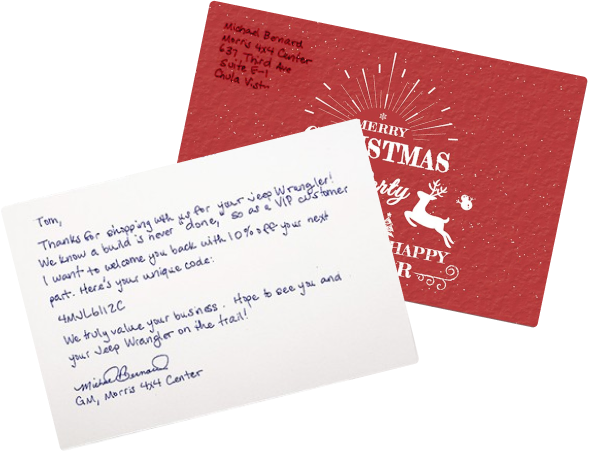 Michael Bernard
Morris 4x4 Center
637 Third Ave
Suite E-1
Chula Vist
MERRY
STMAS
rty
HAPPY
R
Tom,
Thanks for shopping with us for your Jeep Wrangler!
We know a build is never "done", so as a VIP customer
I want to welcome you back with 10% off your next
part. Here's your unique code:
4MJL6112C
We truly value your business. Hope to see you and
your Jeep Wrangler on the trail!
Michael Bernard
GM, Morris 4x4 Center